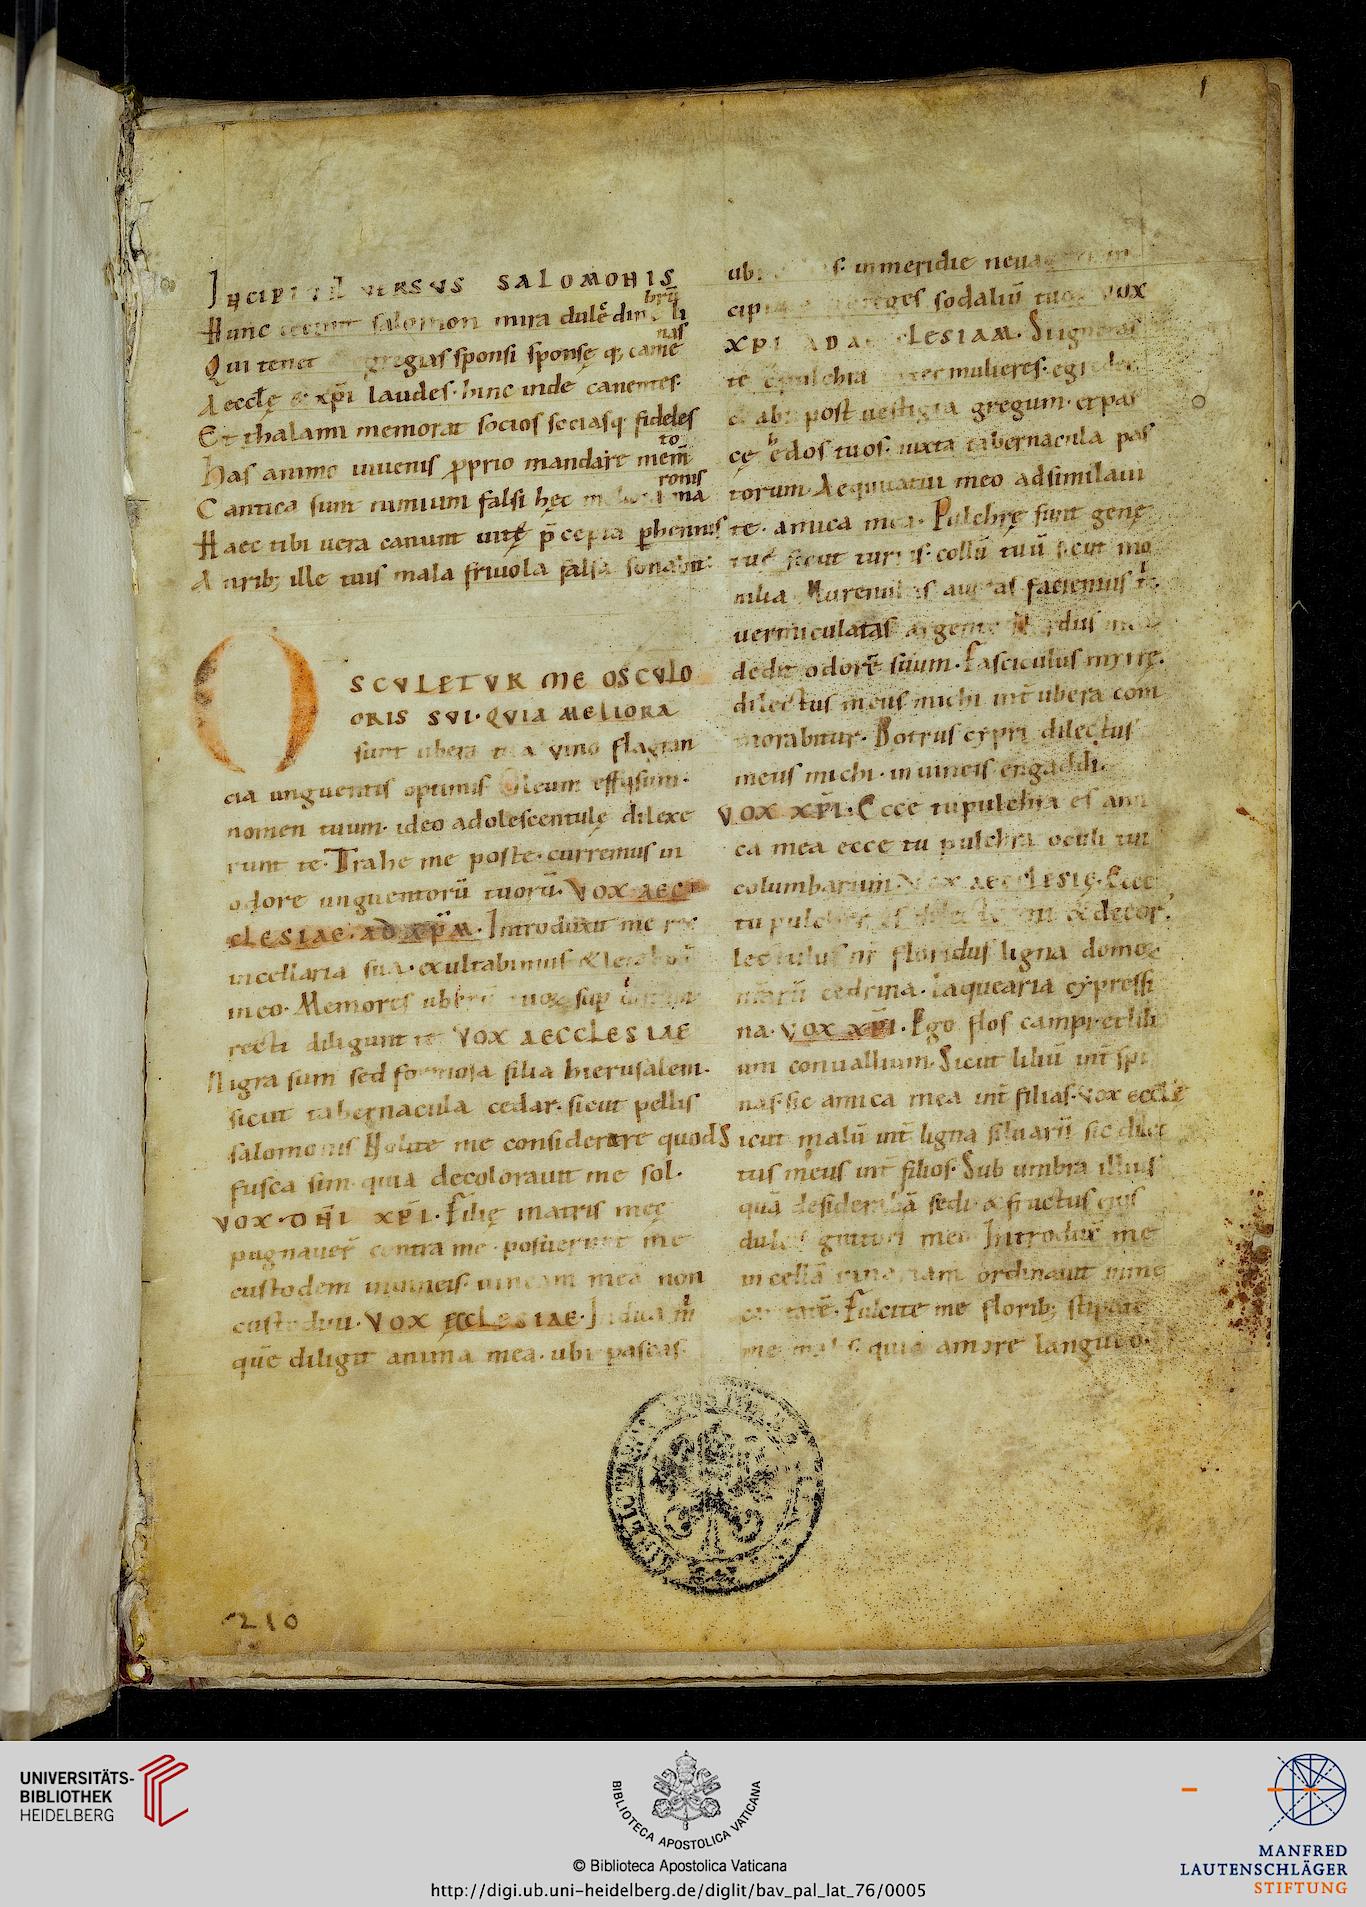 1
INCIPIT VERSUS SALOMONIS
Hunc cecinit salomon mira dulcędine librū
Qui tenet egregias sponsi sponsę q; camenas
Aecclę & xp̄i laudes · hinc inde canentes ·
Et thalami memorat socios sociasq; fideles
Has animo iuvenis ꝓprio mandare mem̄to
Cantica sunt nimium falsi hęc maronis
Haec tibi vera canunt uitę p̄cepta ꝑhennis
Aurib; ille tuis mala frivola falsa sonabit ·
OSCULETUR ME OSCULO
ORIS SUI · QUIA MELIORA
sunt ubera tua vino flagran
cia unguentis optimis Oleum effusum ·
nomen tuum · ideo adolescentulę dilexe
runt te · Trahe me post te · curremus in
odore unguentorū tuorū · VOX AEC
CLESIAE · AD XP̄M · Introduxit me rex
in cellaria sua · exultabimus & letabimur
in eo · Memores uberū tuoꝝ sup vinum
recti diligunt te VOX AECCLESIAE
Nigra sum sed formosa filia hierusalem ·
sicut tabernacula cedar · sicut pellis
salomonis Nolite me considerare quod
fusca sim · quia decoloravit me sol ·
VOX · DN̄I XP̄I · Filię matris męę
pugnaver̄ contra me · posuerunt me
custodem in vineis · vineam meā non
custodivi · VOX ECCLESIAE · Indica m̄
quē diligit anima mea · ubi pascas
ubi cubes in meridie ne vagari in
cipiam greges sodaliū tuoꝝ VOX
XPI AD AECCLESIAM · Si ignoras
te o pulchra inter mulieres · egredere
& abi post vestigia gregum · et pas
cę hedos tuos · iuxta tabernacula pas
torum · Aequitatui meo adsimilavi
te · amica mea · Pulchrę sunt genę
tuę sicut turturis · collū tuū sicut mo
nilia Murenulas aureas faciemus t̄ ·
vermiculatas argento Nardus mea
dedit odorē suum · Fasciculus myrrę ·
dilectus meus michi int̄ ubera com
morabitur · Botrus cypri dilectus
meus michi · in vineis engaddi ·
VOX XP̄I · Ecce tu pulchra es ami
ca mea ecce tu pulchra oculi tui
columbarum · VOX AECCLESIĘ · Ecce
tu pulcher es dilecte mi & decor'
lectulus nr̄ floridus ligna domor
nr̄arū cedrina · laquearia cypressi
na · VOX XP̄I · Ego flos campi et lili
um convallium · Sicut liliū int̄ spi
nas · sic amica mea int̄ filias · VOX ECCLĘ
Sicut malū int̄ ligna silvarū sic dilec
tus meus int̄ filios · Sub umbra illius
quā desiderabā sedi · & fructus eius
dulcis gutturi meo Introdux̄ me
in cellā vinariam ordinavit in me
caritatē · Fulcite me florib; stipate
me malis quia amore langueo ·
210
UNIVERSITÄTS-
BIBLIOTHEK
HEIDELBERG
BIBLIOTECA APOSTOLICA VATICANA
© Biblioteca Apostolica Vaticana
http://digi.ub.uni-heidelberg.de/diglit/bav_pal_lat_76/0005
MANFRED
LAUTENSCHLÄGER
STIFTUNG